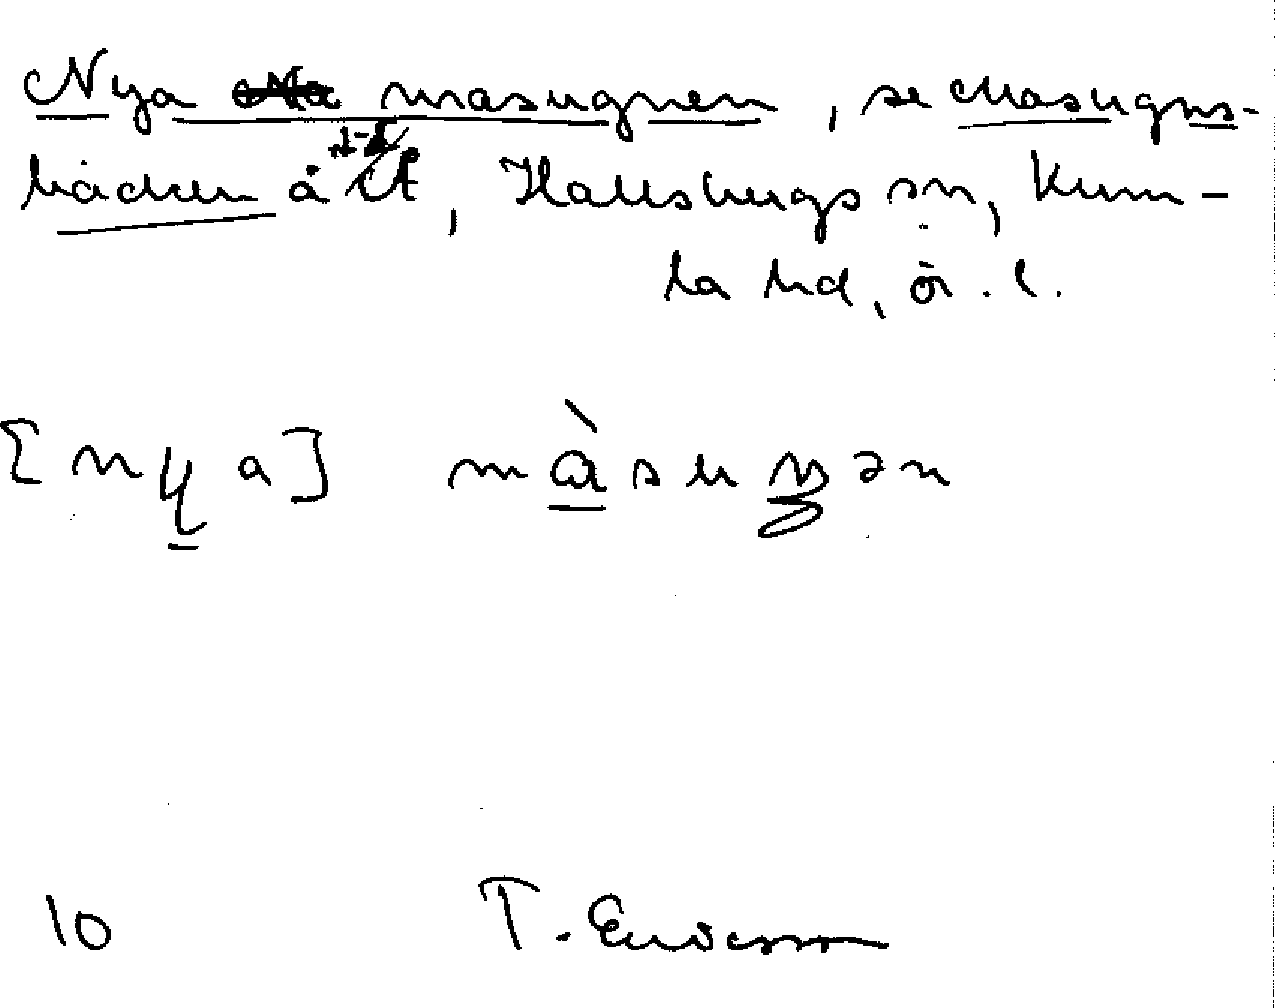 Nya masugnen, se Masugns-
bäcken å, Hallsbergs sn, Kum-
la hd, ör. l.
[nya] màsuŋən
10 T. Ericsson